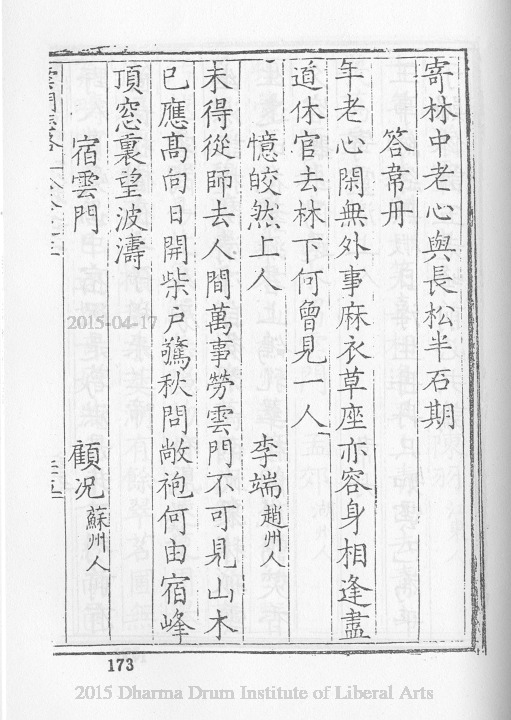 寄林中老心與長松半石期
答韋丹
年老心閑無外事麻衣草座亦容身相逢盡
道休官去林下何曾見一人
憶皎然上人 李端趙州人
未得從師去人間萬事勞雲門不可見山木
已應高向日開柴戶驚秋問敝袍何由宿峰
頂窓裏望波濤
宿雲門 顧況蘇州人
2015-04-17
173
2015 Dharma Drum Institute of Liberal Arts